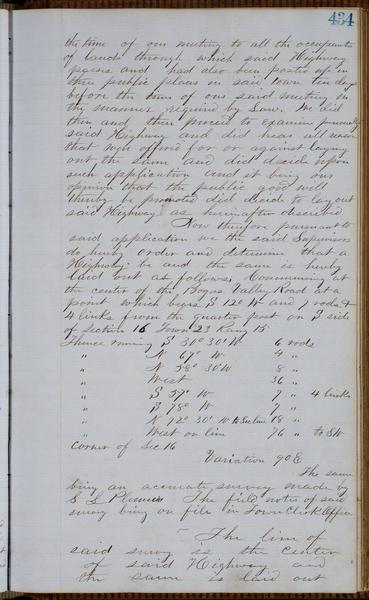 434
the time of our meeting to all the occupants
of lands through which said Highway
passes and had also been posted up in
three public places in said town ten days
before the time of our said meeting in
the manner required by Law. We did
then and there proceed to examine personally
said Highway and did hear all reasons
that were offered for or against laying
out the same and did decide upon
such application and it being our
opinion that the public good will
thereby be promoted did decide to lay out
said Highway as hereinafter described
Now therefore pursuant to
said application we the said Supervisors
do hereby order and determine that a
Highway be and the same is hereby
laid out as follows, Commencing at
the center of the Bogus Valley Road at a
point which bears S 12° W and 7 rods &
4 links from the quarter post on S side
of section 16 Town 23 Rang 15
Thence running S 30° 30' W 6 rods
" N 67° W 4 "
" N 58° 30' W 8 "
" West 36 "
" S 57° W 7 " 4 links
" S 78° W 7 "
" N 72° 30' W to Sec line 18 "
" West on line 76 " to SW
Corner of Sec 16
Variation 9° E
The same
being an accurate survey made by
The field notes of said
survey being on file in Town Clerk Office
The line of
said survey is the center
of said Highway and
the same is laid out